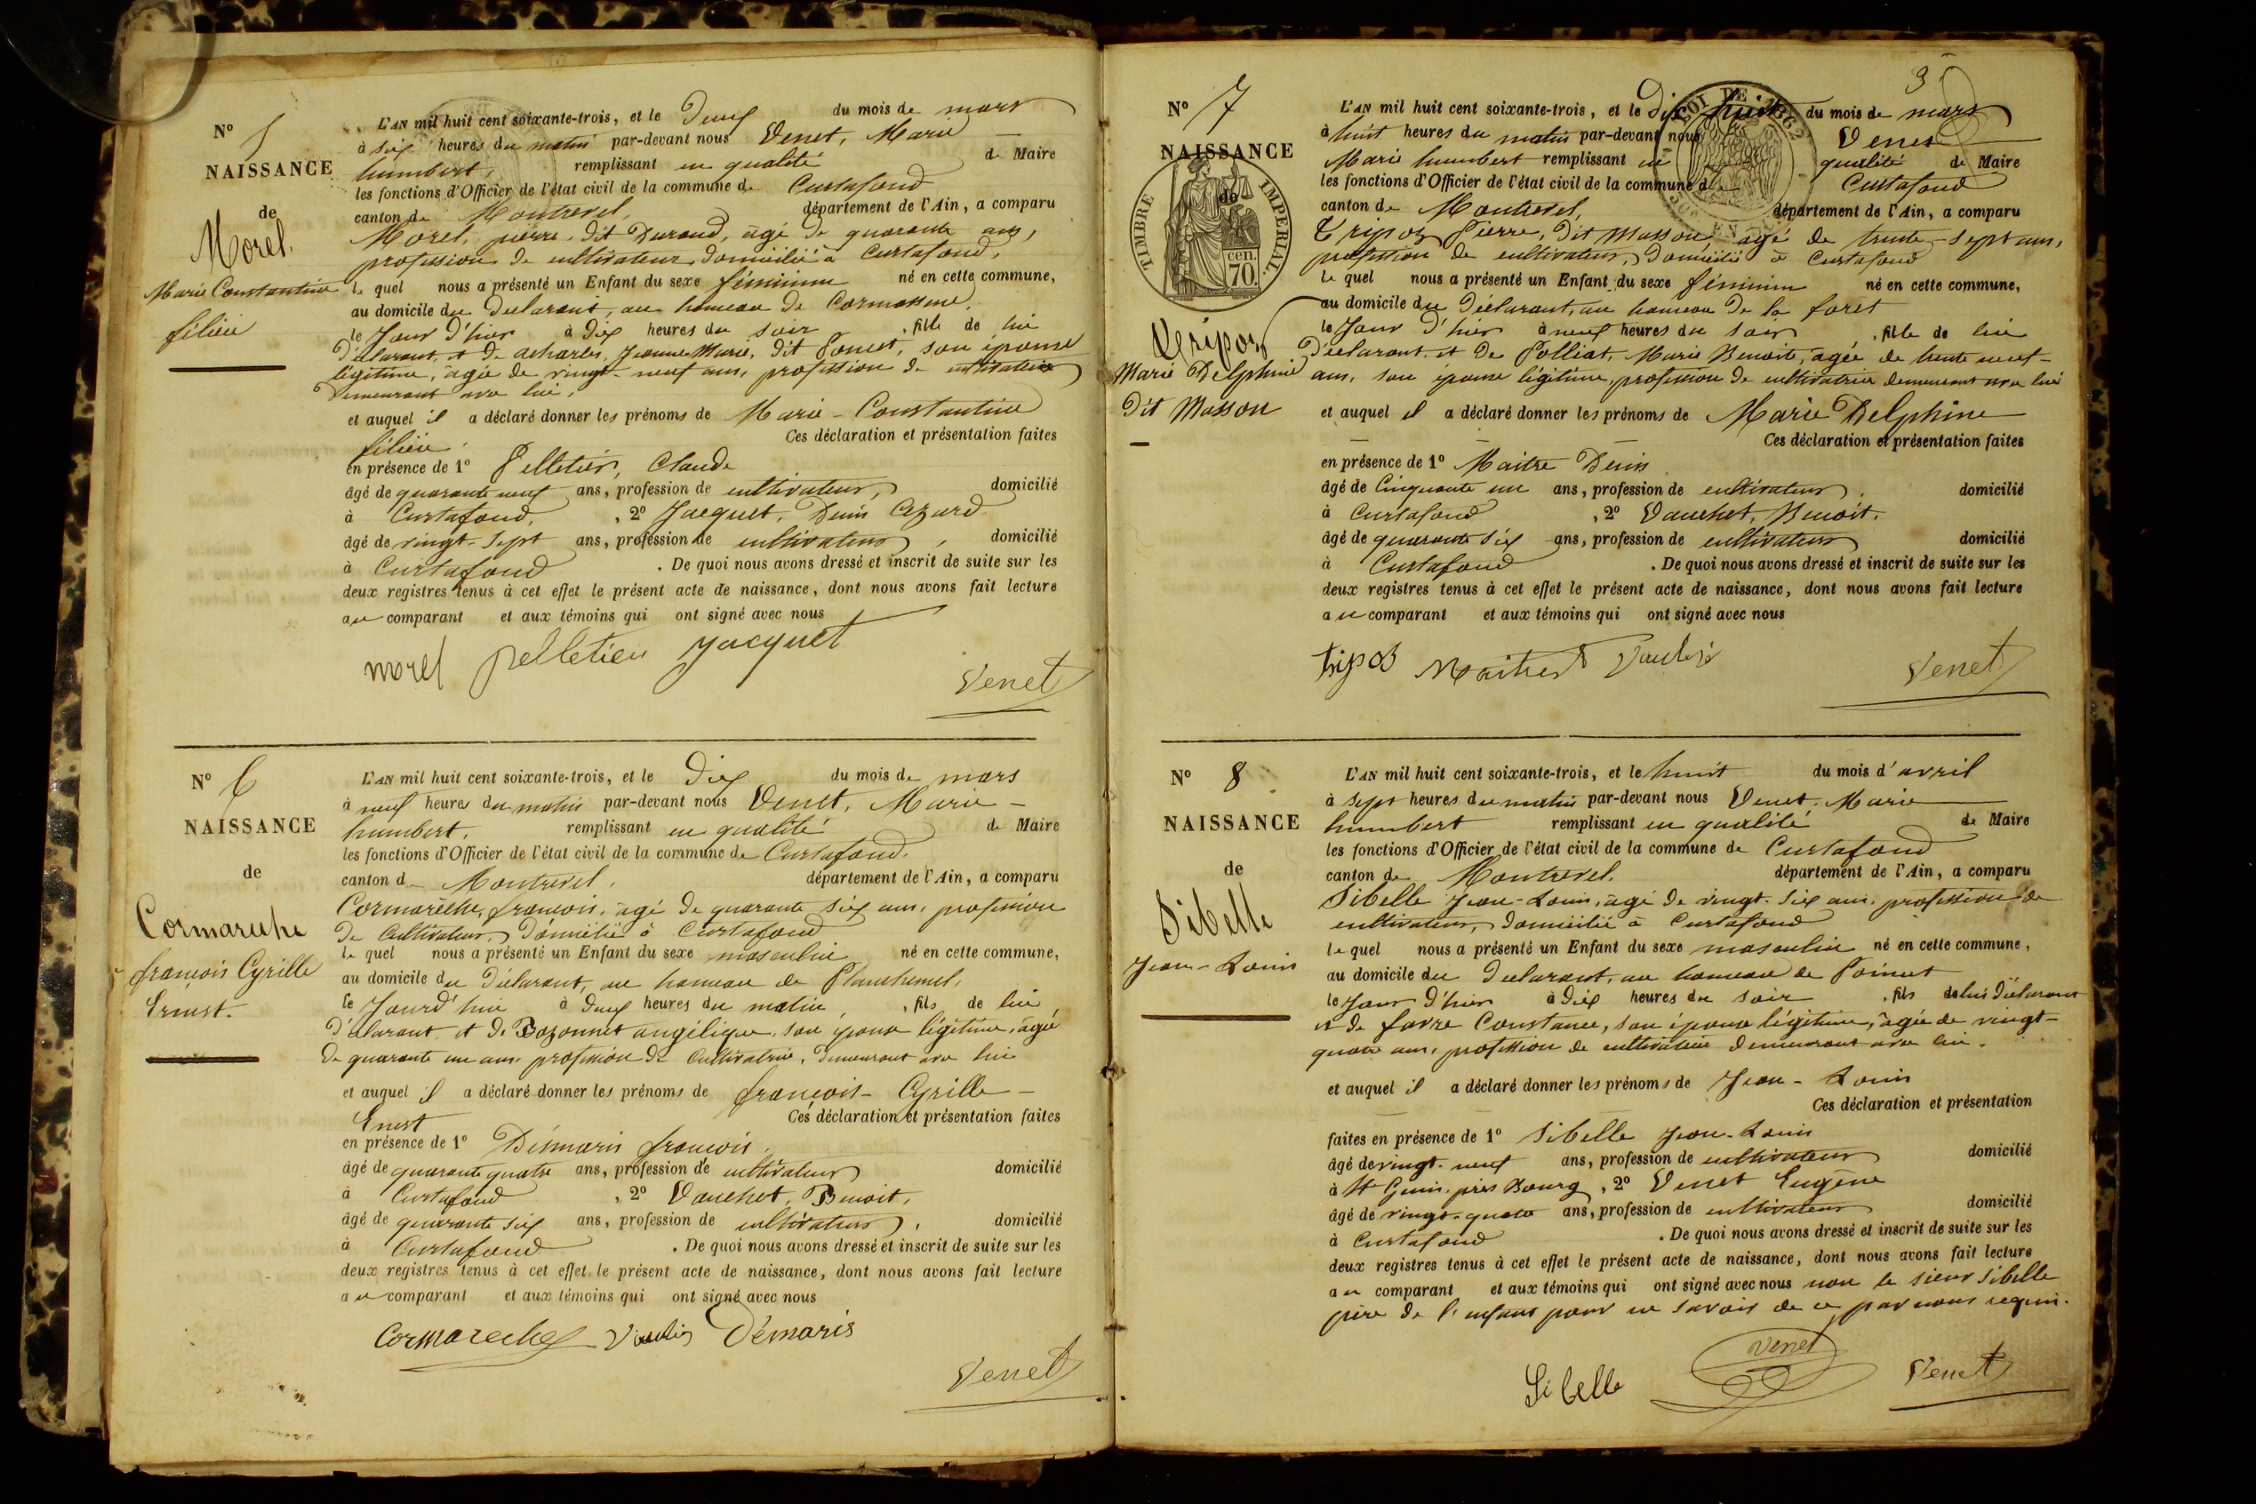 N° 5
NAISSANCE
de
Morel.
Marie Constantine
félicie
L'AN mil huit cent soixante-trois, et le Deux du mois de mars
à six heures du matin par-devant nous Venet, Marie
humbert, remplissant en qualité de Maire
les fonctions d'Officier de l'état civil de la commune de Curtafond
canton de Montrevel, département de l'Ain, a comparu
Morel, pierre, dit Durand, âgé de quarante ans,
profession de cultivateur, domicilié à Curtafond,
le quel nous a présenté un Enfant du sexe féminin né en cette commune,
au domicile du Déclarant, au hameau de
le Jour d'hier à Dix heures du soir, fille de lui
Déclarant, et de Jeanne Marie, dit Poncet, son épouse
légitime, âgée de vingt-neuf ans, profession de cultivatrice
Demeurant avec lui,
et auquel il a déclaré donner les prénoms de Marie-Constantine
félicie. Ces déclaration et présentation faites
en présence de 1° Pelletier, Claude
âgé de quarante neuf ans, profession de cultivateur, domicilié
à Curtafond, , 2° Jacquet, Denis Azard
âgé de vingt-sept ans, profession de cultivateur, domicilié
à Curtafond. De quoi nous avons dressé et inscrit de suite sur les
deux registres tenus à cet effet le présent acte de naissance, dont nous avons fait lecture
au comparant et aux témoins qui ont signé avec nous
morel pelletier jacquet
Venet
N° 6
NAISSANCE
de
Cormareche
françois Cyrille
Ernest.
L'AN mil huit cent soixante-trois, et le Dix du mois de mars
à neuf heures du matin par-devant nous Venet, Marie-
humbert, remplissant en qualité de Maire
les fonctions d'Officier de l'état civil de la commune de Curtafond.
canton d Montrevel, département de l'Ain, a comparu
Cormarèche, françois, âgé de quarante six ans, profession
de Cultivateur, Domicilié à Curtafond
le quel nous a présenté un Enfant du sexe masculin né en cette commune,
au domicile du Déclarant, au hameau de
le Jourd'hui à Deux heures du matin, fils de lui
Déclarant et de Bozonnet angélique, son épouse légitime, âgée
de quarante un ans, profession de Cultivatrice, Demeurant avec lui
et auquel il a déclaré donner les prénoms de françois-Cyrille-
Ernest Ces déclaration et présentation faites
en présence de 1° Démaris françois,
âgé de quarante quatre ans, profession de cultivateur domicilié
à Curtafond, 2° Vauchet, Benoit,
âgé de quarante six ans, profession de cultivateur, domicilié
à Curtafond. De quoi nous avons dressé et inscrit de suite sur les
deux registres tenus à cet effet le présent acte de naissance, dont nous avons fait lecture
au comparant et aux témoins qui ont signé avec nous
Cormareche Démaris
Venet
3
N° 7
NAISSANCE
de
TIMBRE IMPERIAL
cen. 70
LOI DE 1862
Tripoz
Marie Delphine
Dit Masson
L'AN mil huit cent soixante-trois, et le dix huit du mois de mars
à huit heures du matin par-devant nous Venet
Marie humbert remplissant en qualité de Maire
les fonctions d'Officier de l'état civil de la commune d Curtafond
canton de Montrevel, département de l'Ain, a comparu
Tripoz Pierre, Dit Masson, âgé de trente-sept ans,
profession de cultivateur, Domicilié à Curtafond
le quel nous a présenté un Enfant du sexe féminin né en cette commune,
au domicile du Déclarant, au hameau de la foret
le Jour d'hier à neuf heures du soir, fille de lui
Déclarant et de Polliat, Marie Benoite, âgée de trente neuf-
ans, son épouse légitime, profession de cultivatrice demeurant avec lui
et auquel il a déclaré donner les prénoms de Marie Delphine
Ces déclaration et présentation faites
en présence de 1° Maitre Denis
âgé de Cinquante un ans, profession de cultivateur, domicilié
à Curtafond, 2° Vauchet, Benoit,
âgé de quarante six ans, profession de cultivateur domicilié
à Curtafond. De quoi nous avons dressé et inscrit de suite sur les
deux registres tenus à cet effet le présent acte de naissance, dont nous avons fait lecture
au comparant et aux témoins qui ont signé avec nous
tripoz
Venet
N° 8
NAISSANCE
de
Sibelle
Jean-Louis
L'AN mil huit cent soixante-trois, et le huit du mois d'avril
à sept heures du matin par-devant nous Venet, Marie
humbert remplissant en qualité de Maire
les fonctions d'Officier de l'état civil de la commune de Curtafond
canton de Montrevel, département de l'Ain, a comparu
Sibelle Jean-Louis, âgé de vingt-six ans, profession de
cultivateur, Domicilié à Curtafond
le quel nous a présenté un Enfant du sexe masculin né en cette commune,
au domicile du Déclarant, au hameau de
le Jour d'hier à Dix heures du soir, fils de lui Déclarant
et de favre Constance, son épouse légitime, âgée de vingt-
quatre ans, profession de cultivatrice demeurant avec lui.
et auquel il a déclaré donner les prénoms de Jean-Louis
Ces déclaration et présentation
faites en présence de 1° Sibelle Jean-Louis
âgé de vingt-neuf ans, profession de cultivateur domicilié
à St Genis près Bourg, 2° Venet Eugène
âgé de vingt-quatre ans, profession de cultivateur domicilié
à Curtafond. De quoi nous avons dressé et inscrit de suite sur les
deux registres tenus à cet effet le présent acte de naissance, dont nous avons fait lecture
au comparant et aux témoins qui ont signé avec nous non le sieur Sibelle
père de l'enfant pour ne savoir de ce par nous requis.
Sibelle Venet Venet